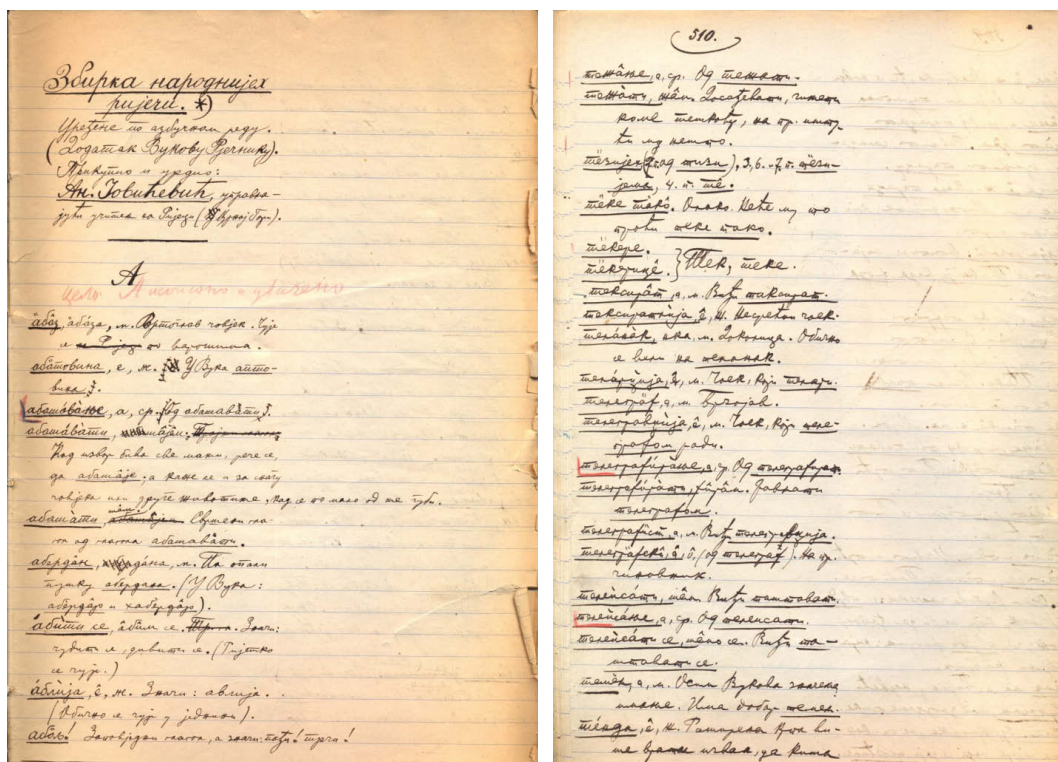 Збирка народнијех
ријечи. *)
Уређене по азбучном реду.
(Додатак Вукову Рјечнику).
Прикупио и уредио:
Ан. Јовићевић, управља-
јући учитељ са Ријеци (у Црној Гори).
А
цело А исписано и увлачено
абаз, абаза, м. човјек. Чује
се на Ријеци по варошима.
абатовина, е, ж. У Вука апто-
вина.
абатавање, а, ср. Од абатавати.
абатавати,
Кад извор бива све мањи, рече се,
да абатаје; а каже се и за снагу
човјека или друге животиње, кад се по мало од ње губи.
абатати Свршени гла-
гол од глагола абатавати.
абердан, абердана, м. Па опали
пушку абердана. (У Вука:
абердар и хабердар).
абити се, абим се. Значи:
чудити се, дивити се. (Ријетко
се чује.)
аблија, е, ж. Значи: авлија.
(Обично се чује у једнини).
абољ! Заповједни глагол, а значи: пођи! трчи!
510.
тежање, а, ср. Од тежати.
тежати, жам. Досађивати, чинети
коме тешкоћу, на пр.
ти му нешто.
тезијех (од тизи), 3, 6. и 7. п. тези-
јема, 4. п. те.
теке тако. Онако. Неће му то
проћи теке тако.
текере.
текерице. } Тек, теке.
тексират, а, м. Виђи таксират.
тексиратлија, е, м. Несрећан чоек.
теланак, ака, м. Доколица. Обично
се вели на теланак.
теларџија, е, м. Чоек, који телари.
телеграф, а, м. Брзојав.
телеграфџија, е, м. Чоек, који теле-
графом ради.
телеграфирање, а, ср. Од телеграфират.
телеграфирати, фирам. Јављати
телеграфом.
телеграфист, а, м. Виђи телеграфџија.
телеграфски, а, о, (од телеграф). На пр.
чиновник.
телепсати, шем. Виђи
телепсање, а, ср. Од телепсати.
телепсати се, шемо се. Виђи та-
се.
темељ, а, м. Осим Вукова значења
имање. Има добар темељ.
тенда, е, ж. Раширена крпа ви-
ше врата изван, да кима